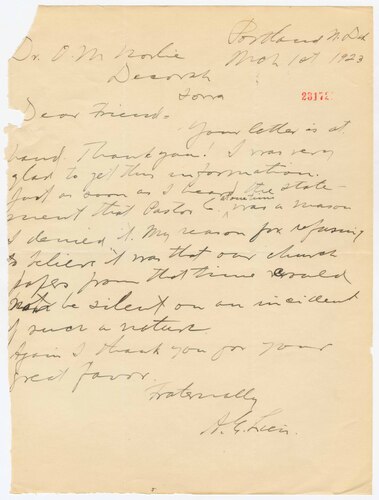 Portland N. Dak
Dr. O. M Norlie Mch 1st 1923
Decorah
Iowa 2317
Dear Friend:-
Your letter is at
hand. Thank you! I was very
glad to get this information.
Just as soon as I heard the state-
ment that Pastor C sometime was a mason
I denied it. My reason for refusing
to believe it was that our church
papers from that time would
not be silent on an incident
of such a nature
Again I thank you for your
great favor.
Fraternally
A. E. Lien.